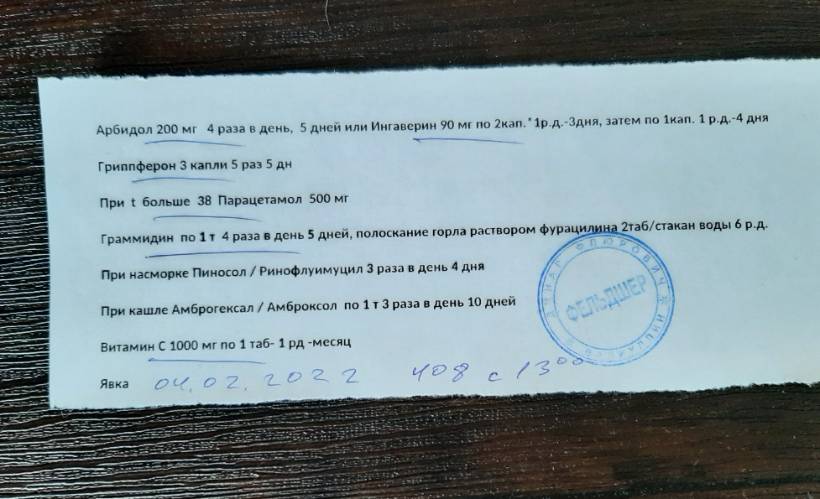 Арбидол 200 мг 4 раза в день, 5 дней или Ингаверин 90 мг по 2кап.*1р.д.-3дня, затем по 1кап. 1 р.д.-4 дня
Гриппферон 3 капли 5 раз 5 дн
При t больше 38 Парацетамол 500 мг
Граммидин по 1 т 4 раза в день 5 дней, полоскание горла раствором фурацилина 2таб/стакан воды 6 р.д.
При насморке Пиносол / Ринофлуимуцил 3 раза в день 4 дня
При кашле Амброгексал / Амброксол по 1 т 3 раза в день 10 дней
Витамин С 1000 мг по 1 таб- 1 рд -месяц
Явка 04.02.2022 408 с 13 00
ФЛЮРОВИЧ
ФЕЛЬДШЕР